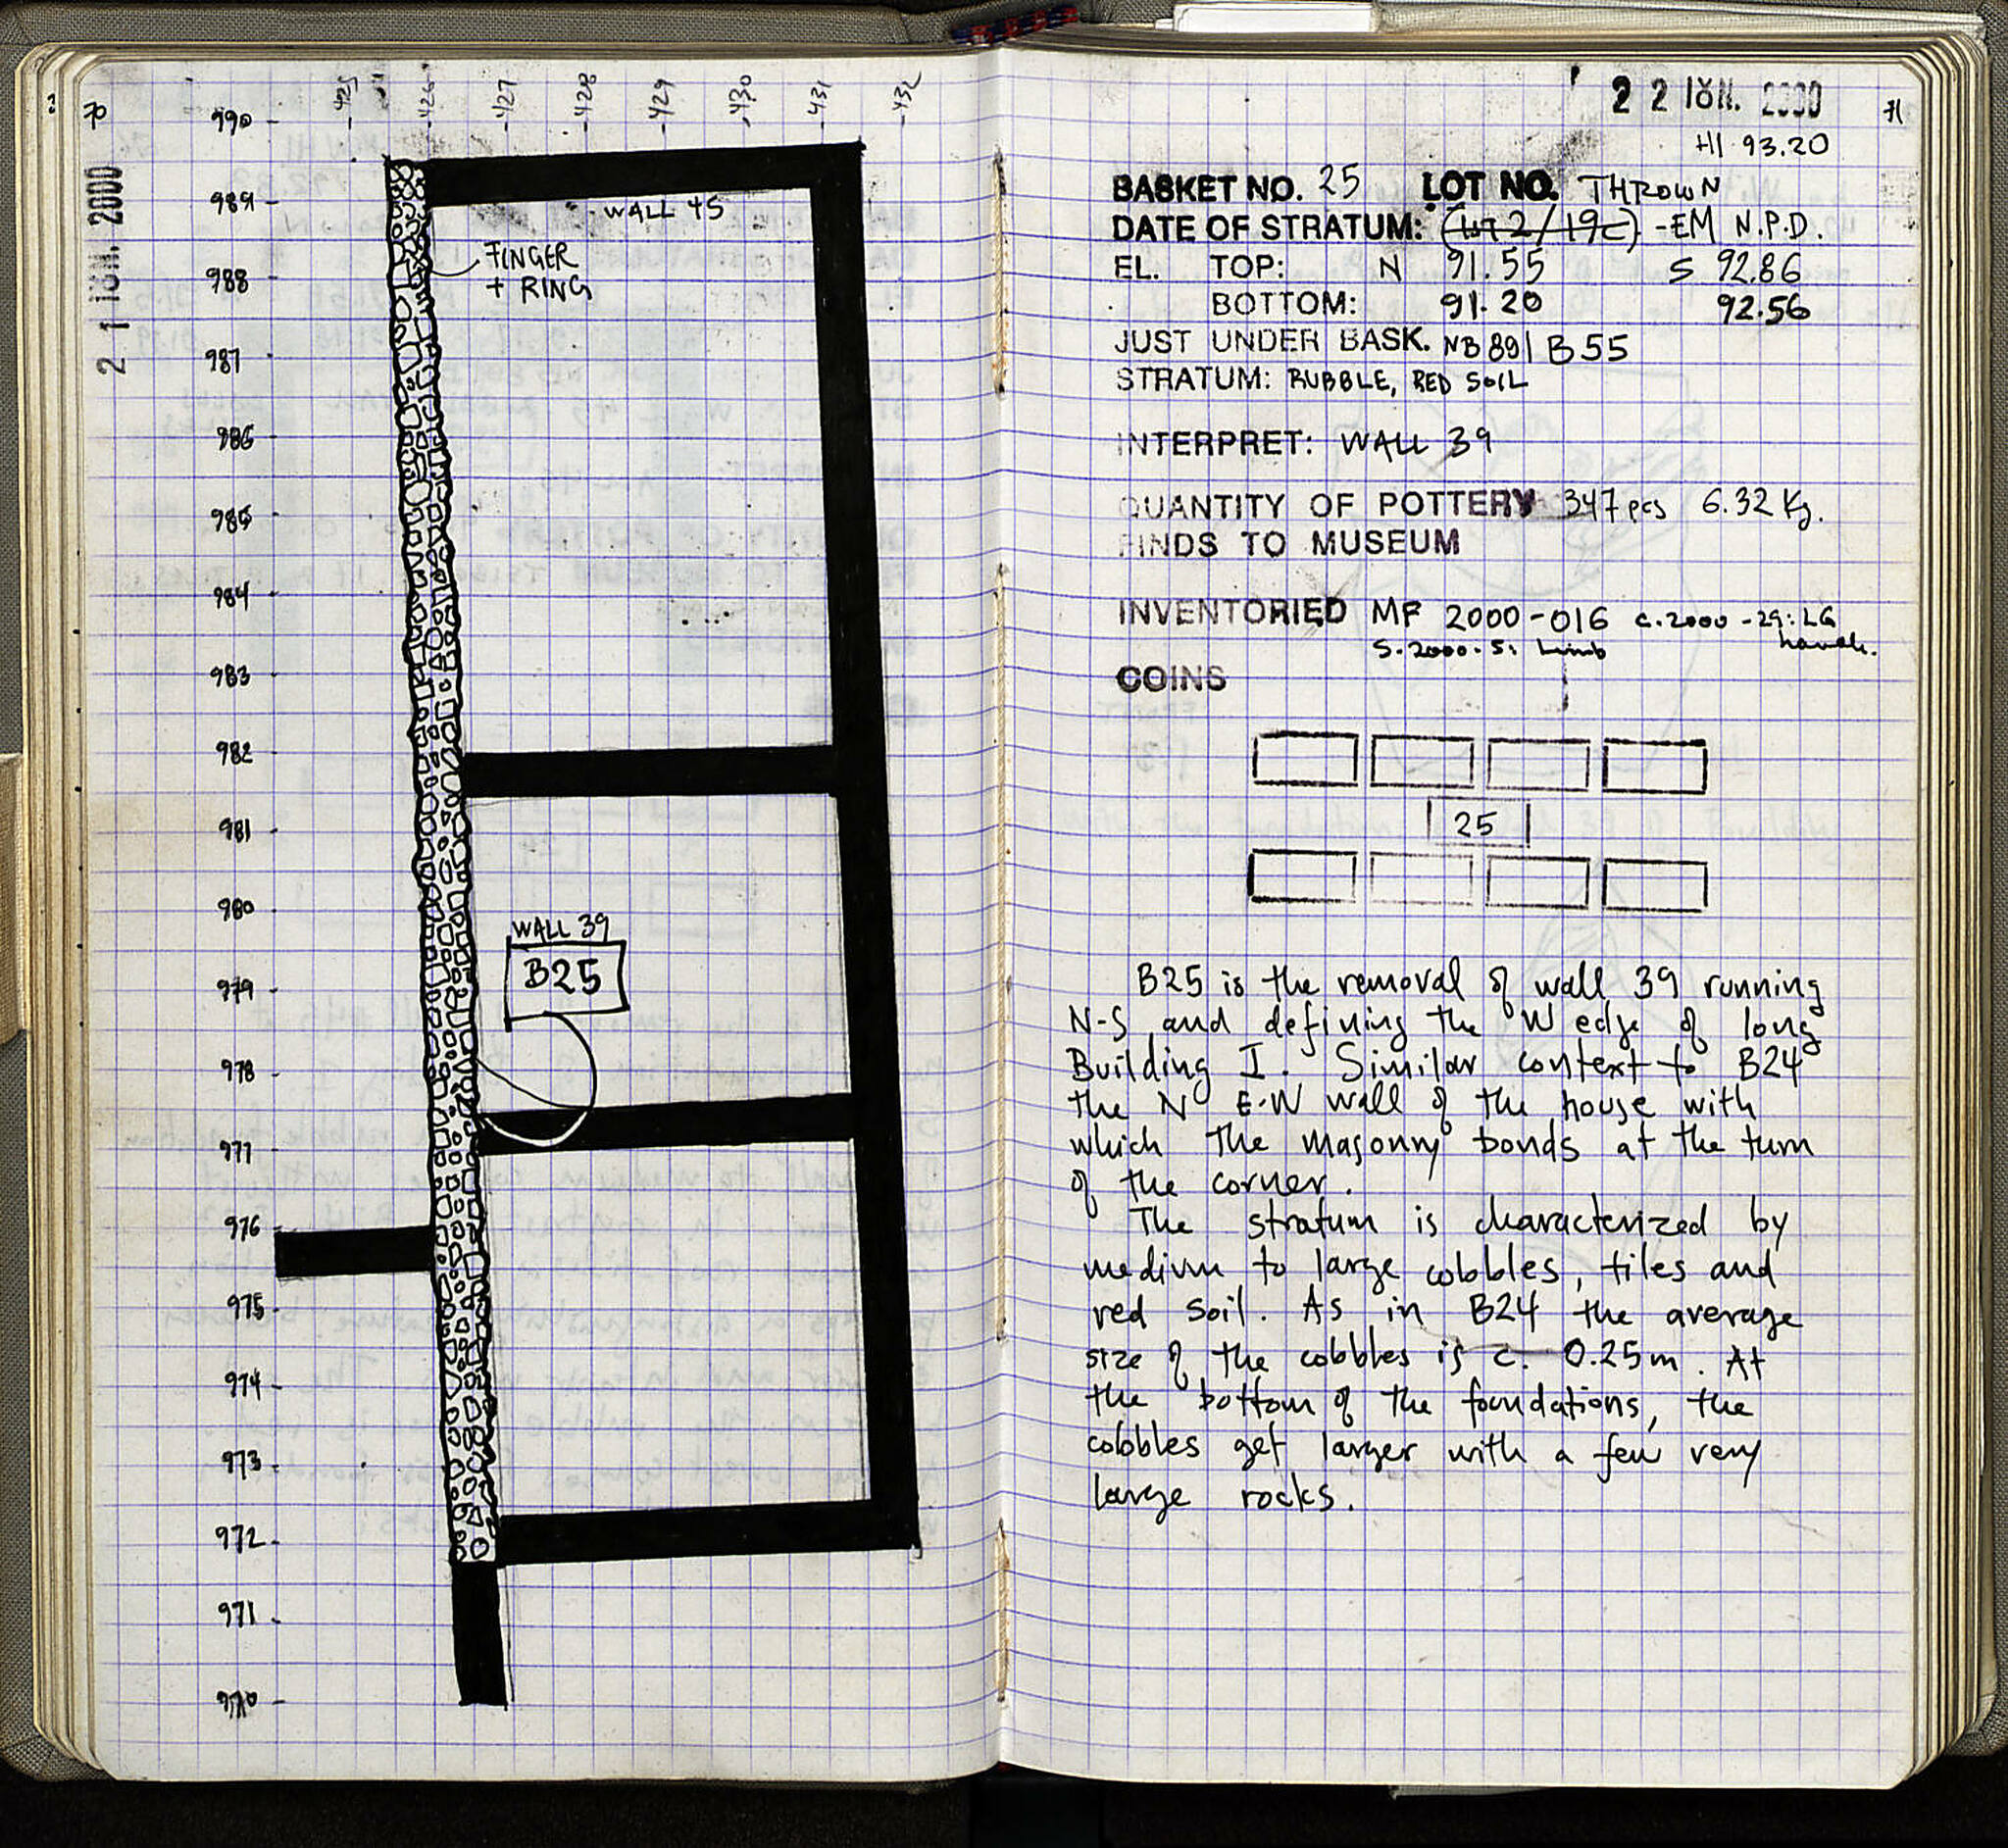 70
2 1 ΙΟΥΝ. 2000
-425 -426 -427 -428 -429 -430 -431 -432
990
989
988
987
986
985
984
983
982
981
980
979
978
977
976
975
974
973
972
971
970
WALL 45
FINGER
+ RING
WALL 39
B25
2 2 ΙΟΥΝ. 2000
71
HI 93.20
BASKET NO. 25 LOT NO. THROWN
DATE OF STRATUM: (LOT 2/19C) - EM N.P.D.
EL. TOP: N 91.55 S 92.86
BOTTOM: 91.20 92.56
JUST UNDER BASK. NB 891 B55
STRATUM: RUBBLE, RED SOIL
INTERPRET: WALL 39
QUANTITY OF POTTERY 347 pcs 6.32 Kg.
FINDS TO MUSEUM
INVENTORIED MF 2000-016 C.2000-29: LG
handle.
S-2000-5: limb
COINS
25
B25 is the removal of wall 39 running
N-S and defining the W edge of long
Building I. Similar context to B24
the N E-W wall of the house with
which the masonry bonds at the turn
of the corner.
The stratum is characterized by
medium to large cobbles, tiles and
red soil. As in B24 the average
size of the cobbles is c. 0.25m. At
the bottom of the foundations, the
cobbles get larger with a few very
large rocks.